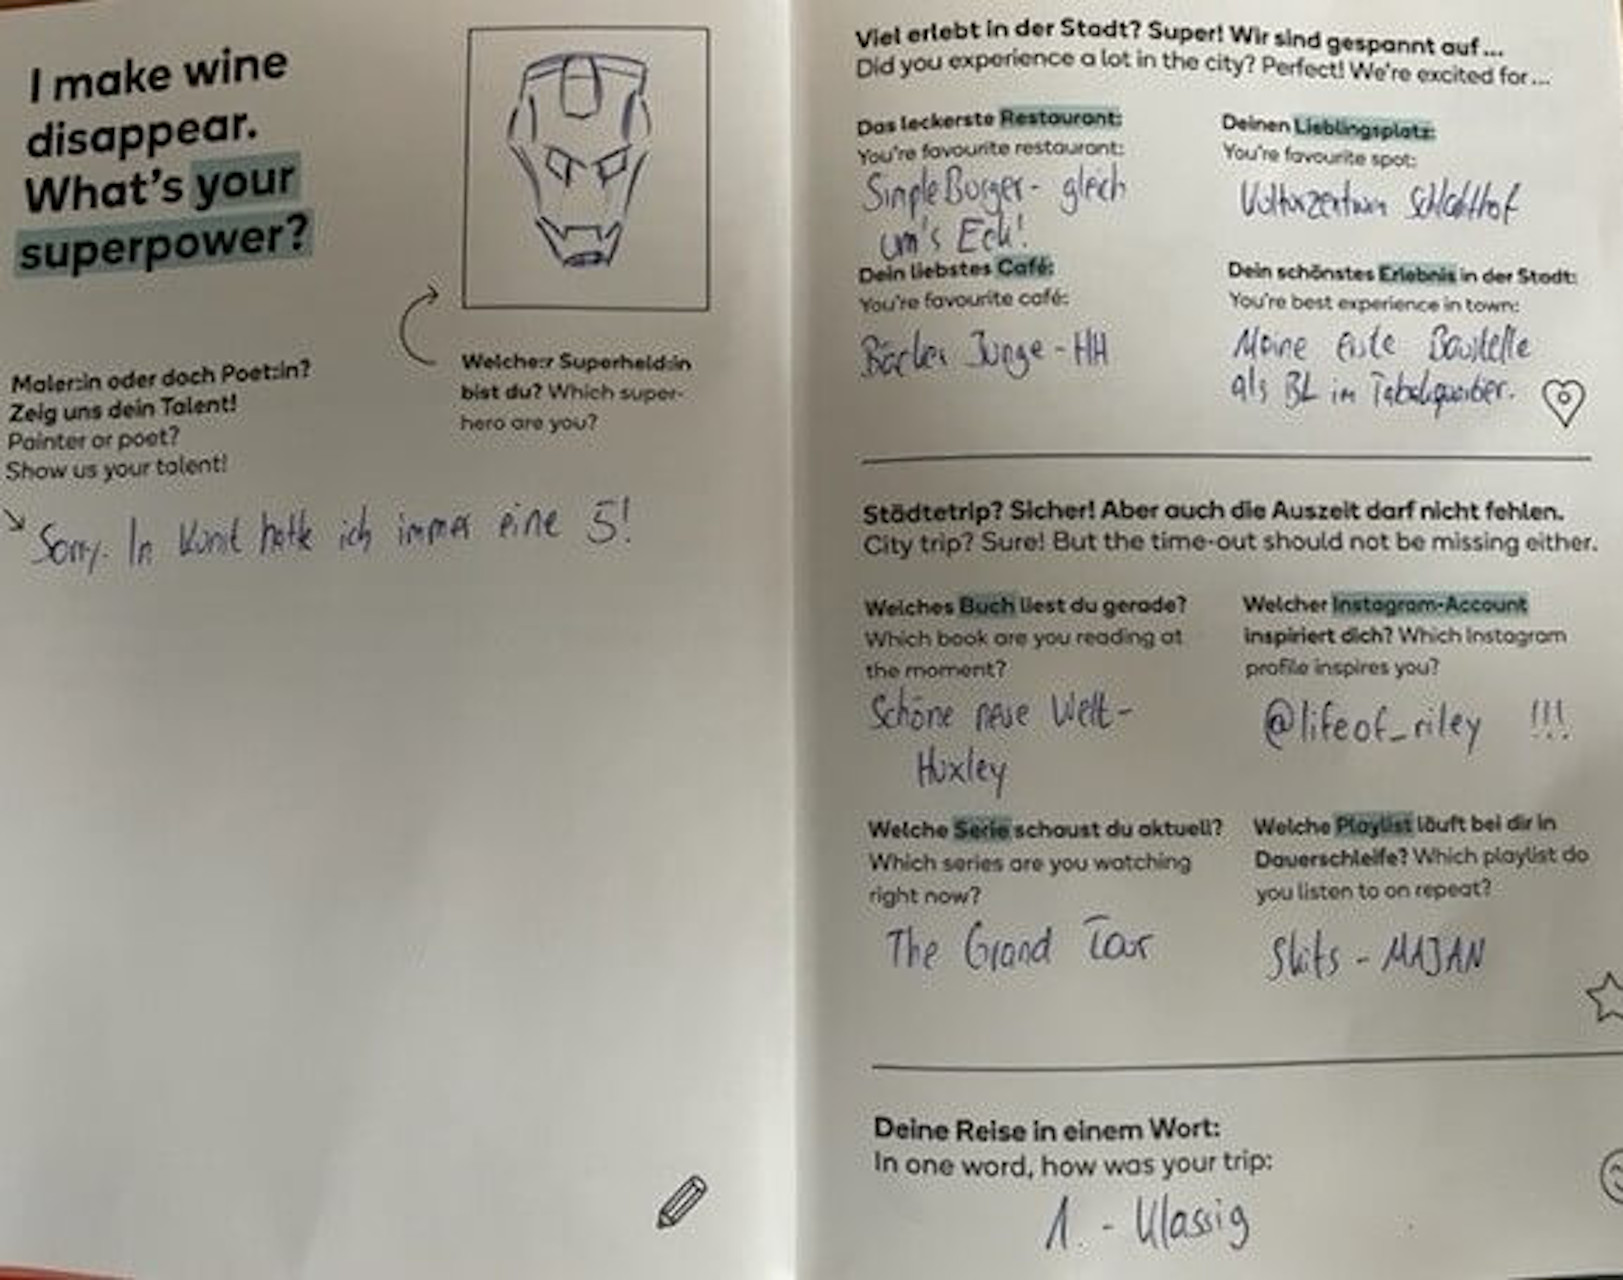 I make wine
disappear.
What's your
superpower?
Welche:r Superheld:in
bist du? Which super-
hero are you?
Maler:in oder doch Poet:in?
Zeig uns dein Talent!
Painter or poet?
Show us your talent!
Sorry. In Kunst hatte ich immer eine 5!
Viel erlebt in der Stadt? Super! Wir sind gespannt auf...
Did you experience a lot in the city? Perfect! We're excited for...
Das leckerste Restaurant:
You're favourite restaurant:
Simple Burger - glech
um's Eck!
Deinen Lieblingsplatz:
You're favourite spot:
Kulturzentrum Schlachthof
Dein liebstes Café:
You're favourite café:
Bäcker Junge - HH
Dein schönstes Erlebnis in der Stadt:
You're best experience in town:
Meine erste Baustelle
als BL im Tabakquartier.
Städtetrip? Sicher! Aber auch die Auszeit darf nicht fehlen.
City trip? Sure! But the time-out should not be missing either.
Welches Buch liest du gerade?
Which book are you reading at
the moment?
Schöne neue Welt -
Huxley
Welcher Instagram-Account
inspiriert dich? Which Instagram
profile inspires you?
@lifeof_riley !!!
Welche Serie schaust du aktuell?
Which series are you watching
right now?
The Grand Tour
Welche Playlist läuft bei dir in
Dauerschleife? Which playlist do
you listen to on repeat?
Skits - MAJAN
Deine Reise in einem Wort:
In one word, how was your trip:
1. - Klassig